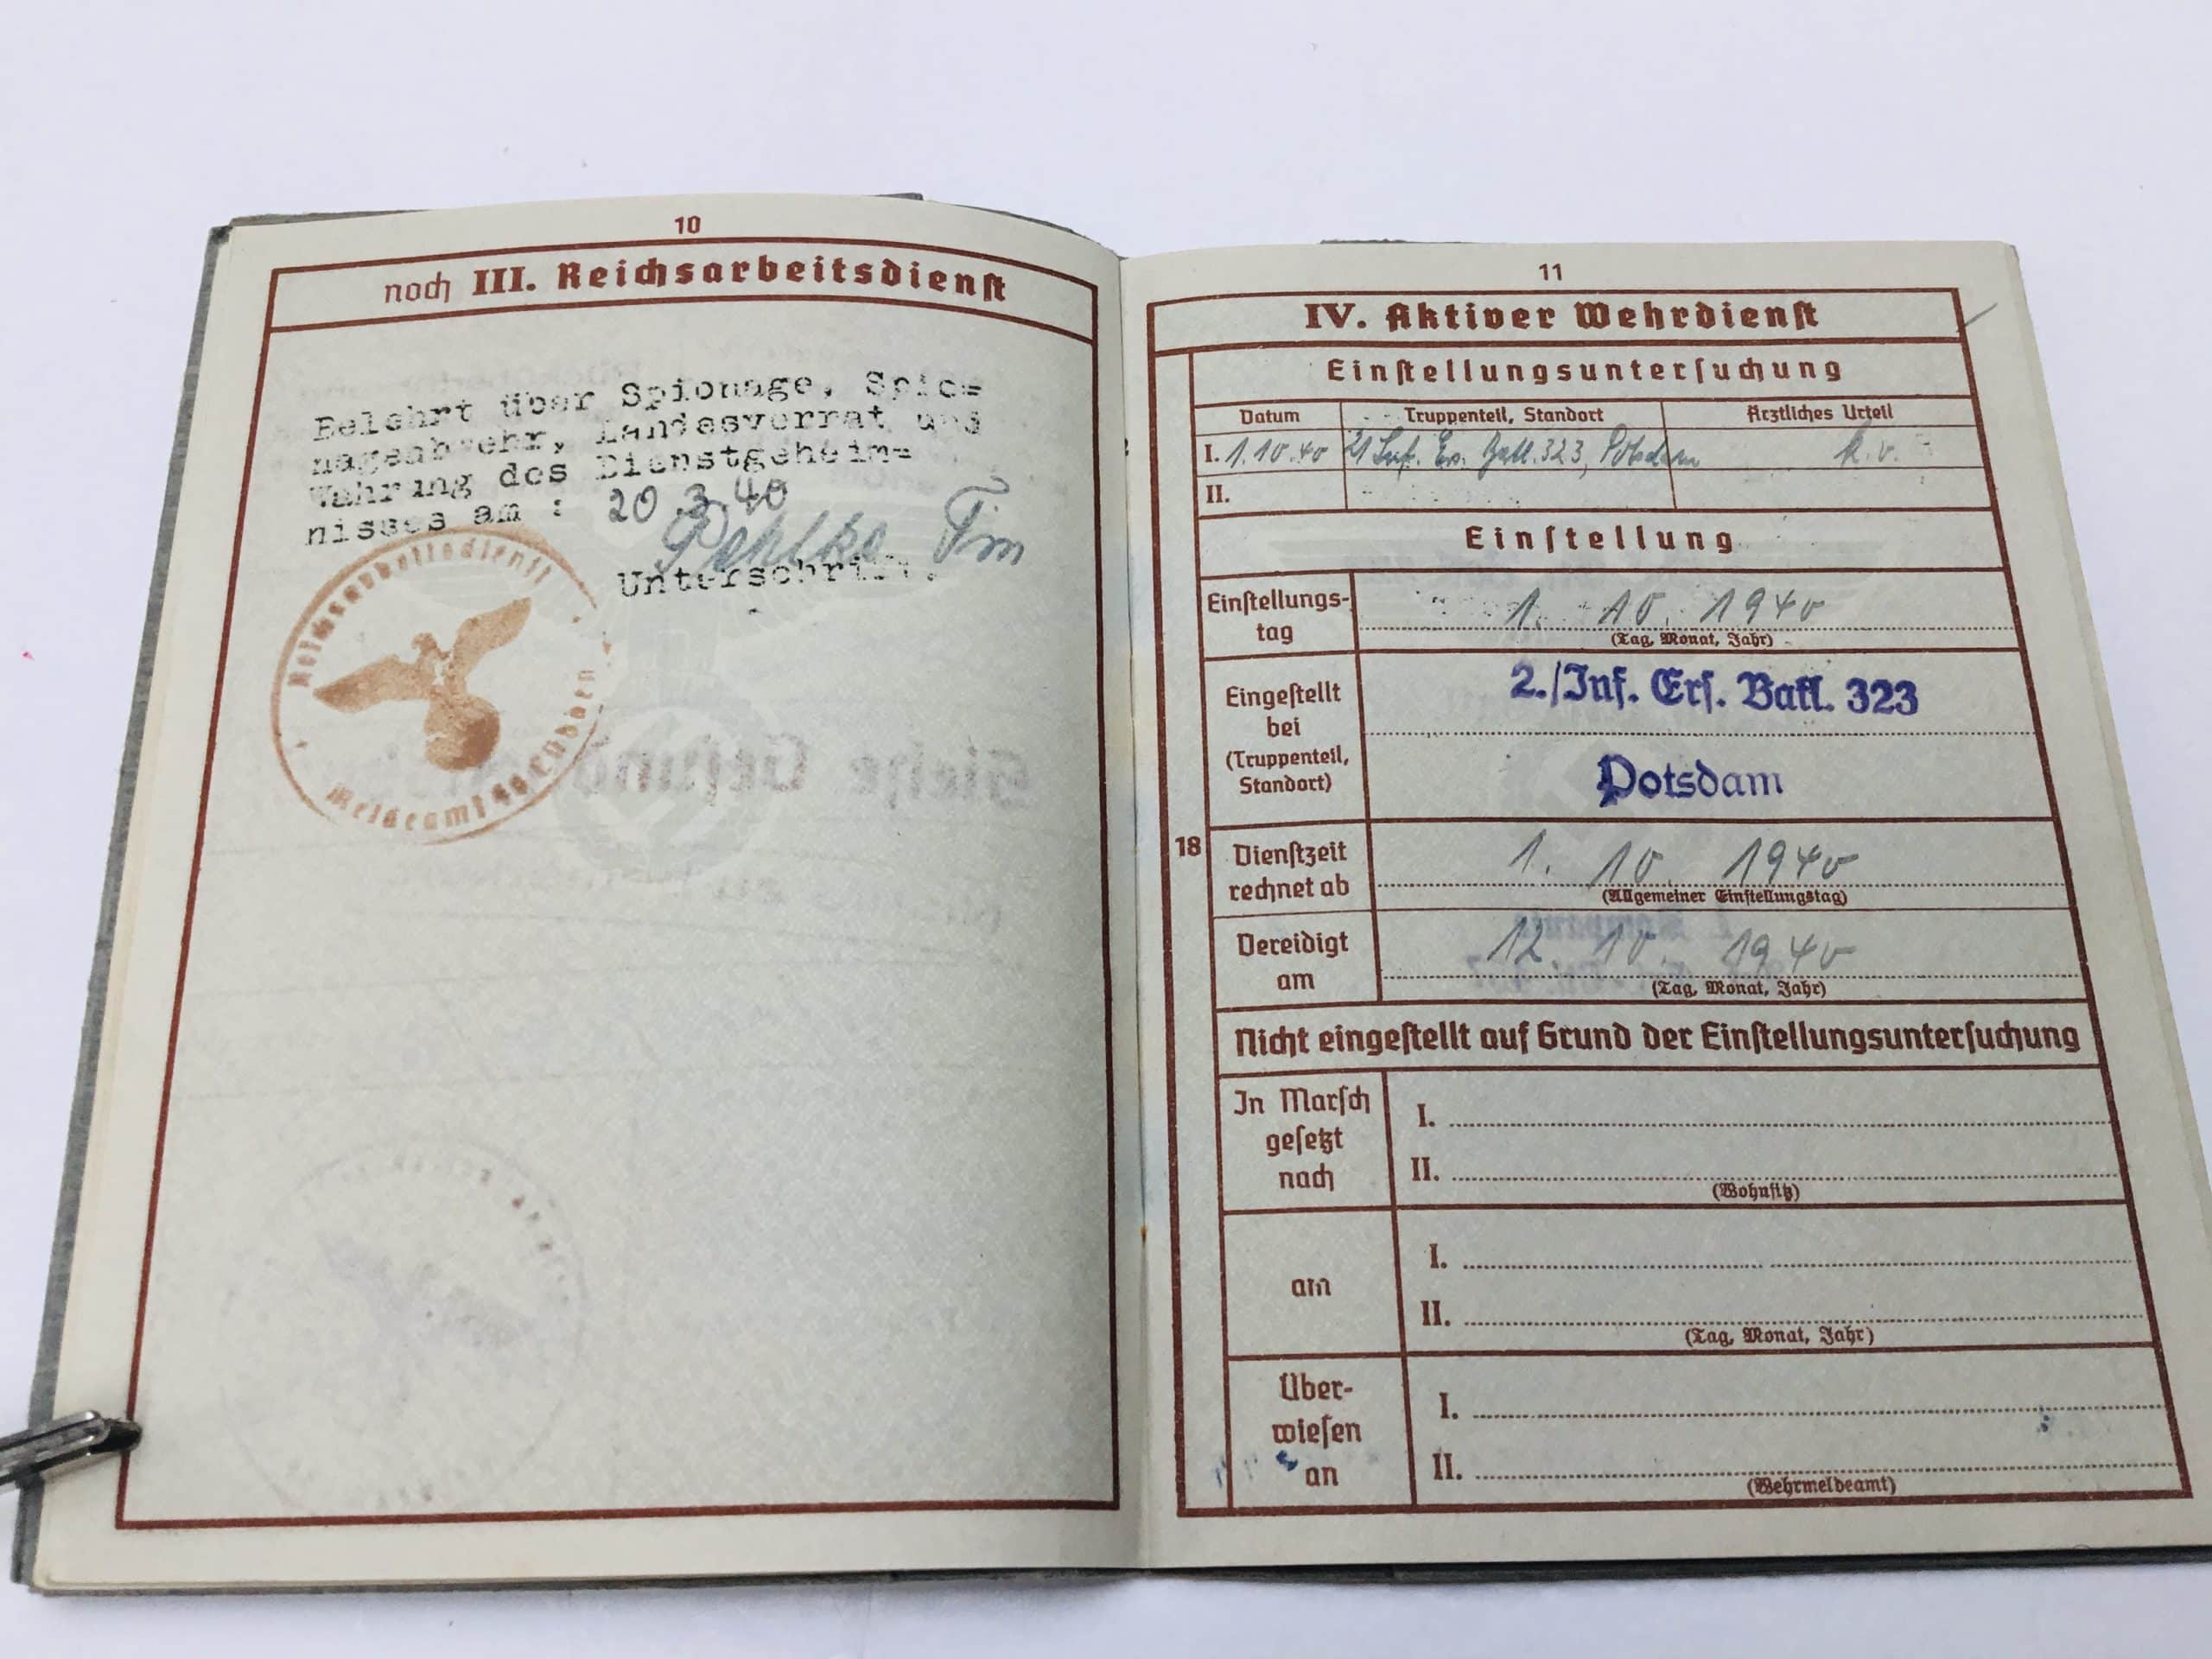 10
noch III. Reichsarbeitsdienst
Belehrt über Spionage, Spio=
nageabwehr, Landesverrat und
Wahrung des Dienstgeheim=
nisses am : 20.3.40
Unterschrift.
Reichsarbeitsdienst
Meldeamt
11
IV. Aktiver Wehrdienst
Einstellungsuntersuchung
Datum Truppenteil, Standort Ärztliches Urteil
I. 1.10.40 Inf. Ers. Batl. 323, Potsdam k.v.
II.
Einstellung
Einstellungs-
tag
1. 10. 1940
(Tag, Monat, Jahr)
Eingestellt
bei
(Truppenteil,
Standort)
2./Inf. Ers. Batl. 323
Potsdam
18
Dienstzeit
rechnet ab
1. 10. 1940
(Allgemeiner Einstellungstag)
Vereidigt
am
12. 10. 1940
(Tag, Monat, Jahr)
Nicht eingestellt auf Grund der Einstellungsuntersuchung
In Marsch
gesetzt
nach
I.
II.
(Wohnsitz)
am
I.
II.
(Tag, Monat, Jahr)
Über-
wiesen
an
I.
II.
(Wehrmeldeamt)